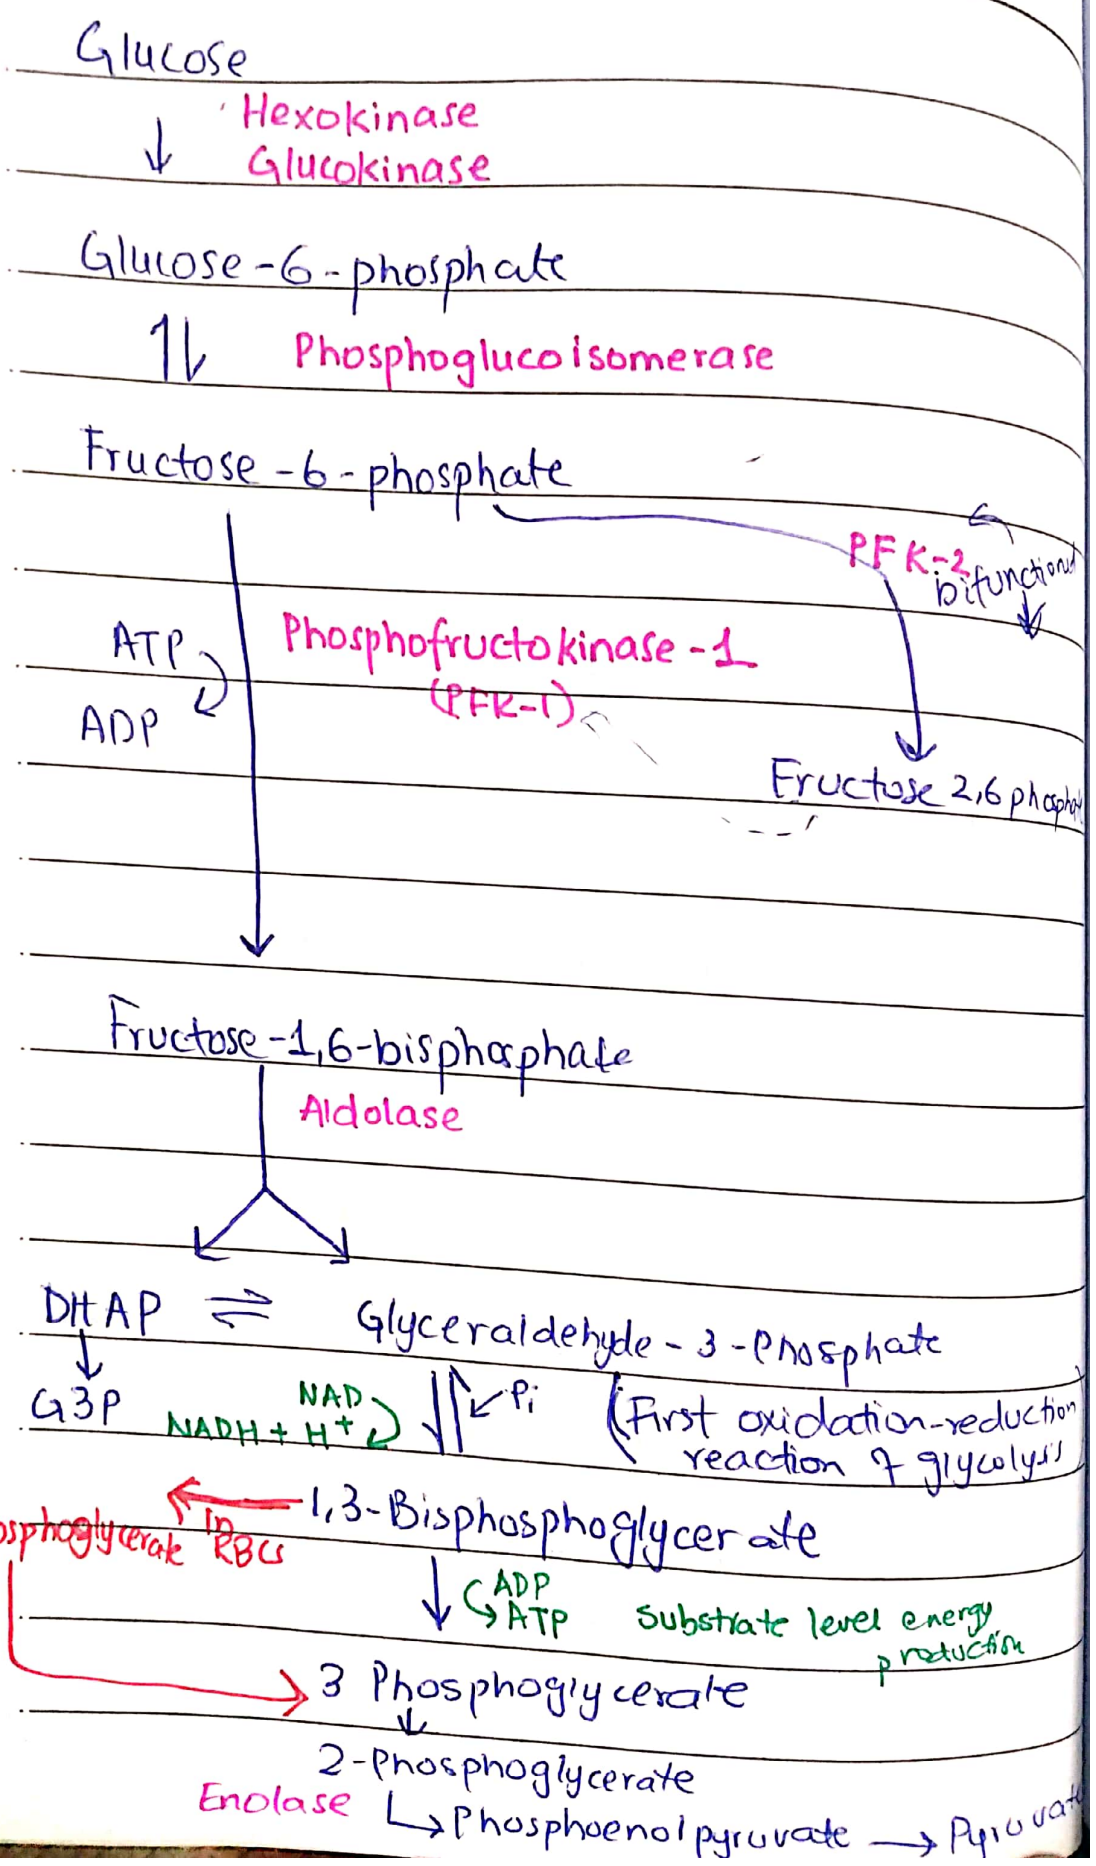 Glucose
↓ Hexokinase
Glucokinase
Glucose-6-phosphate
↑↓ Phosphoglucoisomerase
Fructose-6-phosphate
PFK-2
bifunctional
ATP
Phosphofructokinase-1
(PFK-1)
ADP
Fructose 2,6 phosphate
Fructose-1,6-bisphosphate
Aldolase
DHAP ⇌ Glyceraldehyde-3-Phosphate
↓
G3P
NAD
NADH + H+
Pi
(First oxidation-reduction
reaction of glycolysis
1,3-Bisphosphoglycerate
in
RBCs
osphoglycerate
ADP
ATP
Substrate level energy
production
3 Phosphoglycerate
↓
2-Phosphoglycerate
Enolase
↳ Phosphoenolpyruvate → Pyruvate